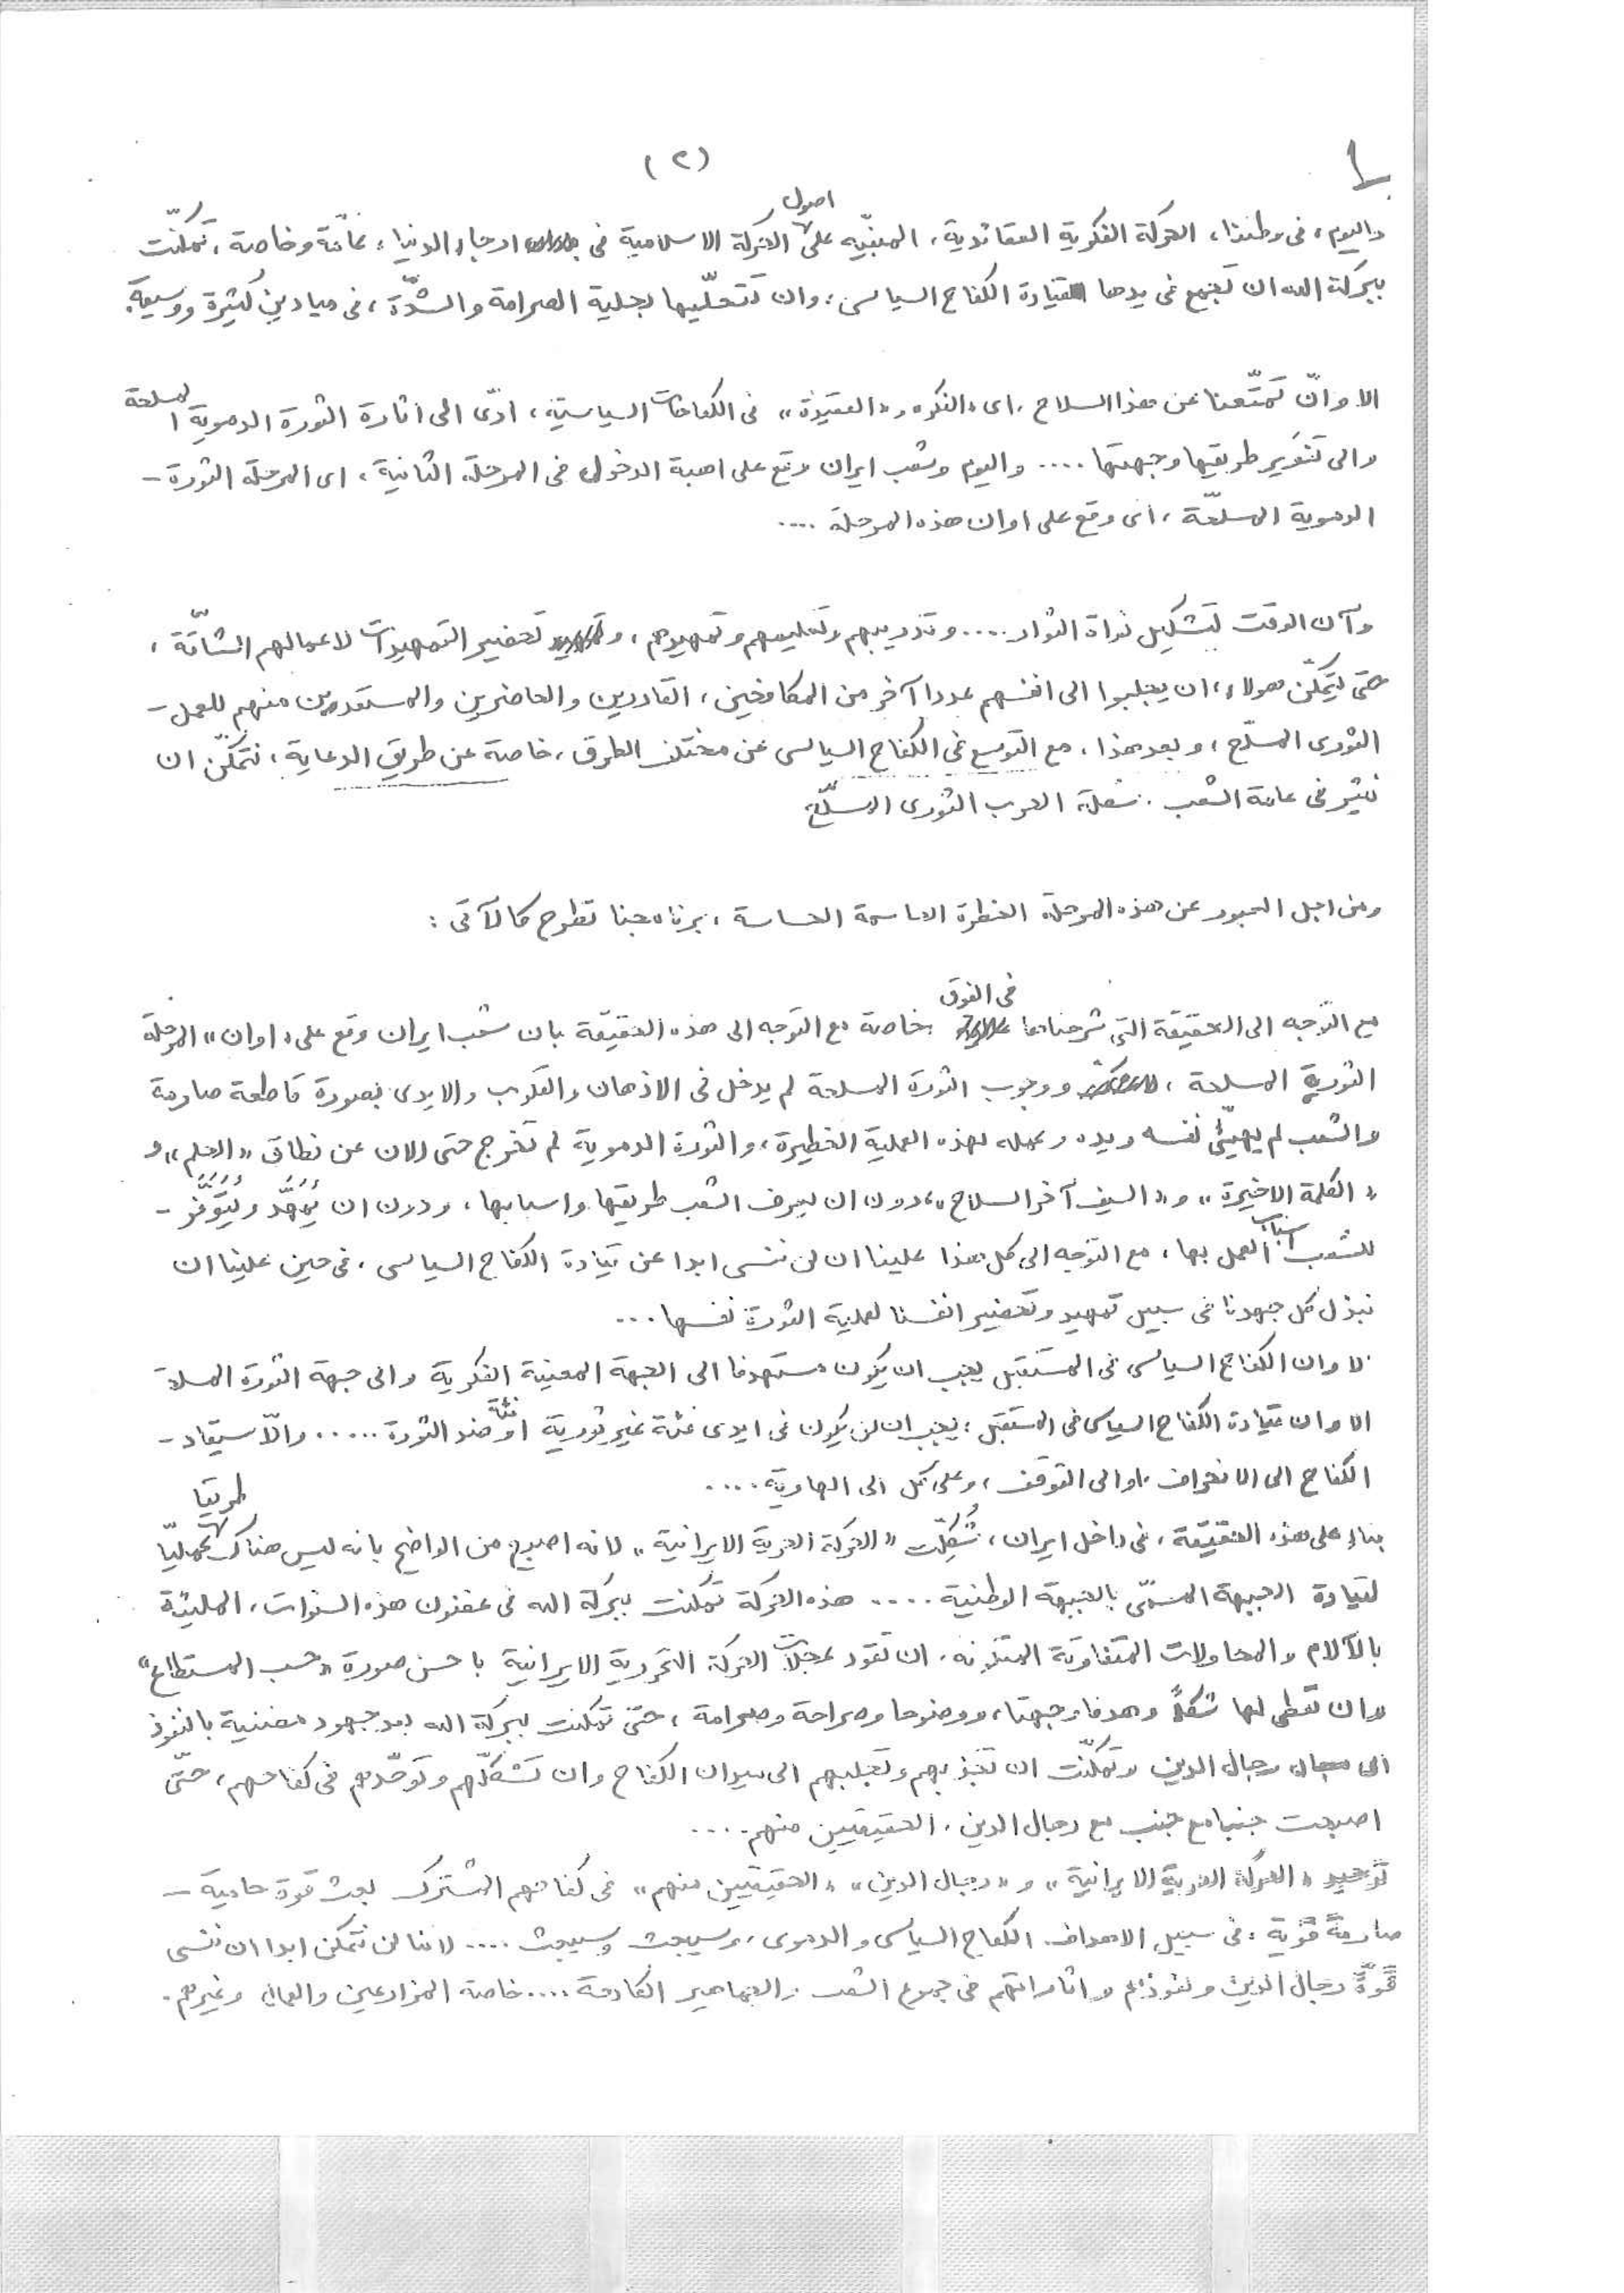 (٢)
واليوم، فى وطننا، الحركة الفكرية العقائدية، المبنيّه على اصول الحركة الاسلامية فى ارجاء الدنيا، عامّة وخاصة، تمكنّت
ببركة الله ان تجمع فى يدها قيادة الكفاح السياسى، وان تتحلّيها بحلية الصرامة والشدّة، فى ميادين كثيرة ووسيعة.
الا وانّ تمتّعنا عن هذا السلاح، اى «الفكره و«العقيدة» فى الكفاحات السياسية، ادّى الى اثارة الثورة الدموية المسلحة
والى تنوير طريقها وجهتها .... واليوم وشعب ايران وقع على اهبة الدخول فى المرحلة الثانية، اى المرحلة الثورة -
الدموية المسلحّة، اى وقع على اوان هذه المرحلة ....
وآن الوقت لتشكيل نواة الثوار .... وتدريبهم وتعليمهم وتمهيدهم، و تحضير التمهيدات لاعمالهم الشاقّة،
حتى يتمكّن هولاء، ان يجلبوا الى انفسهم عددا آخر من المكافحين، القادرين والحاضرين والمستعدين منهم للعمل -
الثورى المسلّح، وبعد هذا، مع التوسع فى الكفاح السياسى عن مختلف الطرق، خاصة عن طريق الدعاية، نتمكّن ان
نثير فى عامة الشعب، شعلة الحرب الثورى المسلّح
ومن اجل العبور عن هذه المرحلة الخطرة الحاسمة الحساسة، برنامجنا تطرح كالآتى:
مع التوّجه الى الحقيقة التى شرحناها فى الفوق خاصة مع التوجه الى هذه الحقيقة بان شعب ايران وقع على «اوان» المرحلة
الثورية المسلحة، ووجوب الثورة المسلحة لم يدخل فى الاذهان والقلوب والايدى بصورة قاطعة صارمة
والشعب لم يهيّئ نفسه ويده وعمله لهذه العملية الخطيرة، والثورة الدموية لم تخرج حتى الان عن نطاق «الحلم» و
«الكلمة الاخيرة» و«السيف آخر السلاح»، دون ان يعرف الشعب طريقها واسبابها، ودون ان يُمهَّد ويُتَوَفَّر -
للشعب اسباب العمل بها، مع التوّجه الى كل هذا علينا ان لن ننسى ابدا عن قيادة الكفاح السياسى، فى حين علينا ان
نبذل كل جهدنا فى سبيل تمهيد وتحضير انفسنا لعملية الثورة نفسها ...
الا وان الكفاح السياسى فى المستقبل يجب ان يكون مستهدفا الى الجهة المعنية الفكرية والى جبهة الثورة المسلحة
الا وان قيادة الكفاح السياسى فى المستقبل؛ يجب ان لن يكون فى ايدى فئة غير ثورية او فئة ضد الثورة ..... والّا سيقاد -
الكفاح الى الانحراف، او الى التوقف، وعلى كل الى الهاوية ....
بناء على هذه الحقيقة، فى داخل ايران، شُكِلّت «الحركة الحرية الايرانية» لانه اصبح من الواضح بانه ليس هناك طريقا عمليّا
لقيادة الجبهة المسمّى بالجبهة الوطنية .... هذه الحركة تمكنت ببركة الله فى غضون هذه السنوات، المليئة
بالآلام والمحاولات المتفاوتة المتلونه، ان تقود عجلات الحركة التحررية الايرانية باحسن صورة «حسب المستطاع»
وان تعطى لها شكلاً وهدفا وجهتا، ووضوحا وصراحة وصرامة، حتّى تمكنت ببركة الله بعد جهود مضنية بالنفوذ
الى مجال رجال الدين وتمكنّت ان تجذبهم وتجلبهم الى ميدان الكفاح وان تشكلّهم وتوحّدهم فى كفاحهم، حتّى
اصبحت جنبا مع جنب مع رجال الدين، الحقيقيين منهم ....
توحيد «الحركة الحرية الايرانية» و«رجال الدين» «الحقيقيين منهم» فى كفاحهم المشترك بعث قوة حامية -
صارمةً قويّة، فى سبيل الاهداف الكفاح السياسى والدموى، وسيبعث وسيبعث .... لاننا لن نتمكن ابدا ان ننسى
قوّة رجال الدين ونفوذهم واثاراتهم فى جموع الشعب والجماهير الكادحة .... خاصة المزارعين والعمال وغيرهم.